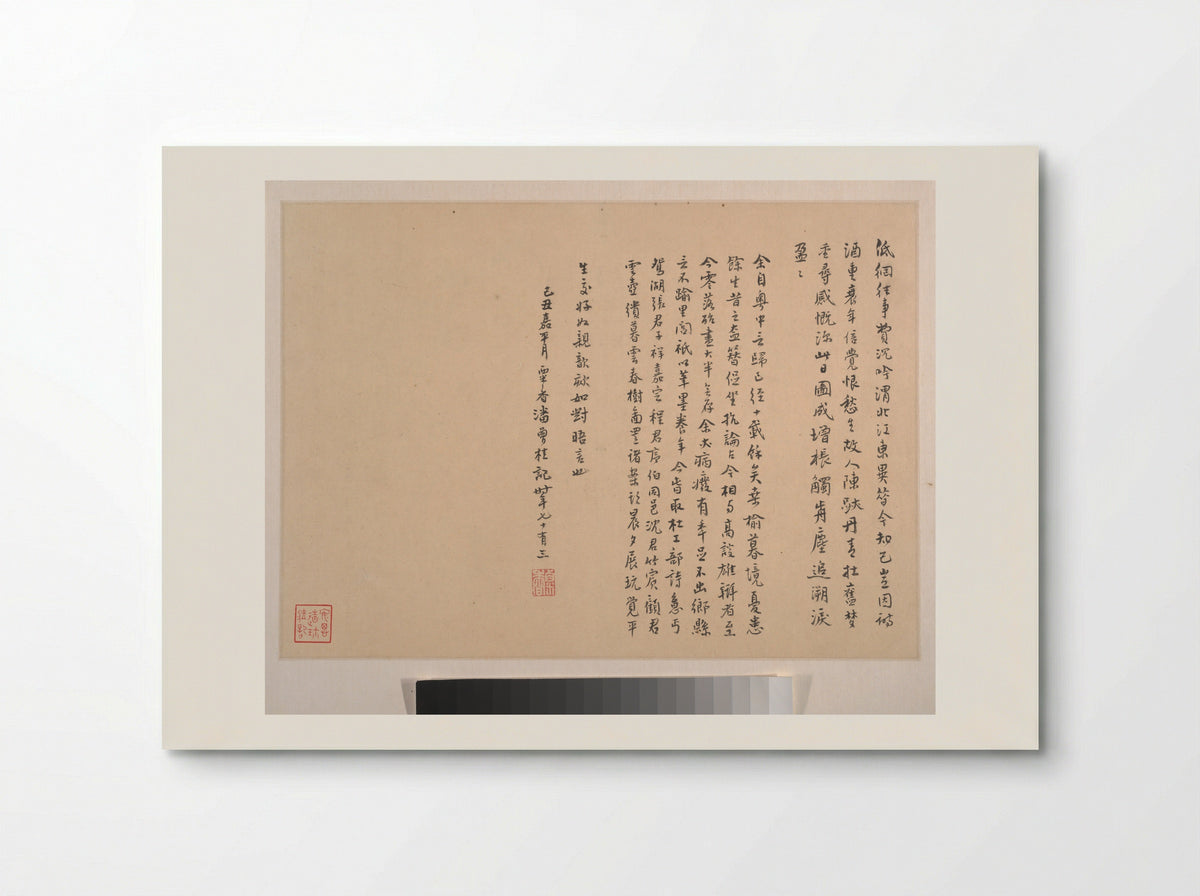 低徊往事費沉吟渭北江東異昔今知己豈因詩
酒重衰年倍覺恨愁生故人陳跡丹青在舊夢
重尋感慨深此日圖成增棖觸前塵追溯淚
盈〻
余自粵中言歸已經十載餘矣桑榆暮境憂患
餘生昔之盍簪促坐抗論古今相與高談雄辯者至
今零落殆盡大半無存余又病癈有年足不出鄉縣
言不踰里閈祇以筆墨養年今取杜工部詩意丐
鴛湖張君子祥嘉定程君序伯同邑沈君竹賓顧君
雲壺繢暮雲春樹圖置諸案頭晨夕展玩覺平
生交好如親謦欬如對晤言也
己丑嘉平月者潘曾桂記時年七十有三